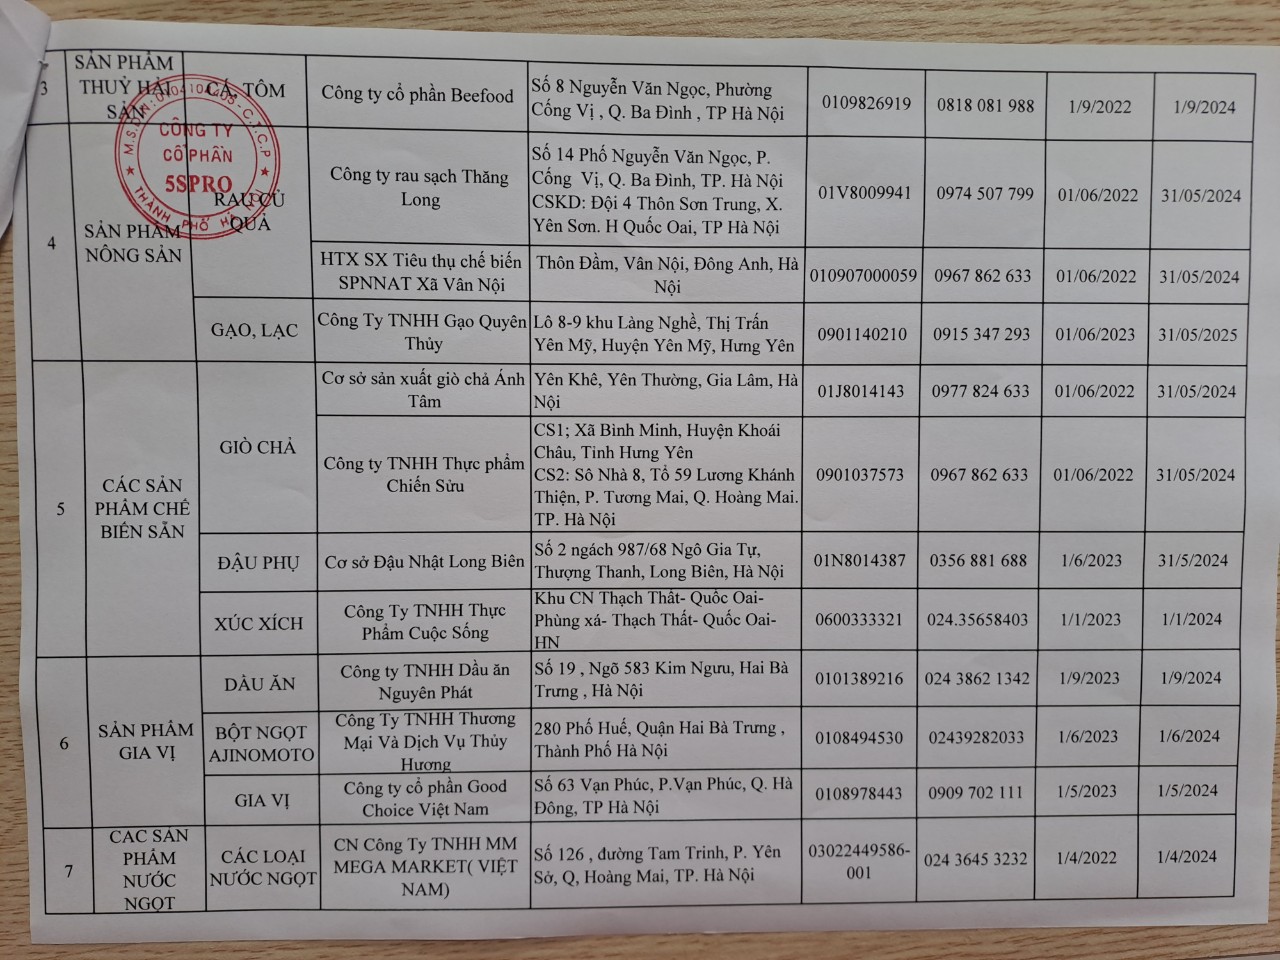 3
SẢN PHẨM
THUỶ HẢI
SẢN
CÁ, TÔM
Công ty cổ phần Beefood
Số 8 Nguyễn Văn Ngọc, Phường
Cống Vị , Q. Ba Đình , TP Hà Nội
0109826919
0818 081 988
1/9/2022
1/9/2024
CÔNG TY
CỔ PHẦN
5SPRO
THÀNH PHỐ HÀ NỘI
4
SẢN PHẨM
NÔNG SẢN
RAU CỦ
QUẢ
Công ty rau sạch Thăng
Long
Số 14 Phố Nguyễn Văn Ngọc, P.
Cống Vị, Q. Ba Đình, TP. Hà Nội
CSKD: Đội 4 Thôn Sơn Trung, X.
Yên Sơn. H Quốc Oai, TP Hà Nội
01V8009941
0974 507 799
01/06/2022
31/05/2024
HTX SX Tiêu thụ chế biến
SPNNAT Xã Vân Nội
Thôn Đầm, Vân Nội, Đông Anh, Hà
Nội
010907000059
0967 862 633
01/06/2022
31/05/2024
GẠO, LẠC
Công Ty TNHH Gạo Quyên
Thủy
Lô 8-9 khu Làng Nghề, Thị Trấn
Yên Mỹ, Huyện Yên Mỹ, Hưng Yên
0901140210
0915 347 293
01/06/2023
31/05/2025
5
CÁC SẢN
PHẨM CHẾ
BIẾN SẴN
GIÒ CHẢ
Cơ sở sản xuất giò chả Ánh
Tâm
Yên Khê, Yên Thường, Gia Lâm, Hà
Nội
01J8014143
0977 824 633
01/06/2022
31/05/2024
Công ty TNHH Thực phẩm
Chiến Sửu
CS1; Xã Bình Minh, Huyện Khoái
Châu, Tỉnh Hưng Yên
CS2: Số Nhà 8, Tổ 59 Lương Khánh
Thiện, P. Tương Mai, Q. Hoàng Mai.
TP. Hà Nội
0901037573
0967 862 633
01/06/2022
31/05/2024
ĐẬU PHỤ
Cơ sở Đậu Nhật Long Biên
Số 2 ngách 987/68 Ngô Gia Tự,
Thượng Thanh, Long Biên, Hà Nội
01N8014387
0356 881 688
1/6/2023
31/5/2024
XÚC XÍCH
Công Ty TNHH Thực
Phẩm Cuộc Sống
Khu CN Thạch Thất- Quốc Oai-
Phùng xá- Thạch Thất- Quốc Oai-
HN
0600333321
024.35658403
1/1/2023
1/1/2024
6
SẢN PHẨM
GIA VỊ
DẦU ĂN
Công ty TNHH Dầu ăn
Nguyên Phát
Số 19 , Ngõ 583 Kim Ngưu, Hai Bà
Trưng , Hà Nội
0101389216
024 3862 1342
1/9/2023
1/9/2024
BỘT NGỌT
AJINOMOTO
Công Ty TNHH Thương
Mại Và Dịch Vụ Thủy
Hương
280 Phố Huế, Quận Hai Bà Trưng ,
Thành Phố Hà Nội
0108494530
02439282033
1/6/2023
1/6/2024
GIA VỊ
Công ty cổ phần Good
Choice Việt Nam
Số 63 Vạn Phúc, P.Vạn Phúc, Q. Hà
Đông, TP Hà Nội
0108978443
0909 702 111
1/5/2023
1/5/2024
7
CÁC SẢN
PHẨM
NƯỚC
NGỌT
CÁC LOẠI
NƯỚC NGỌT
CN Công Ty TNHH MM
MEGA MARKET( VIỆT
NAM)
Số 126 , đường Tam Trinh, P. Yên
Sở, Q, Hoàng Mai, TP. Hà Nội
03022449586-
001
024 3645 3232
1/4/2022
1/4/2024